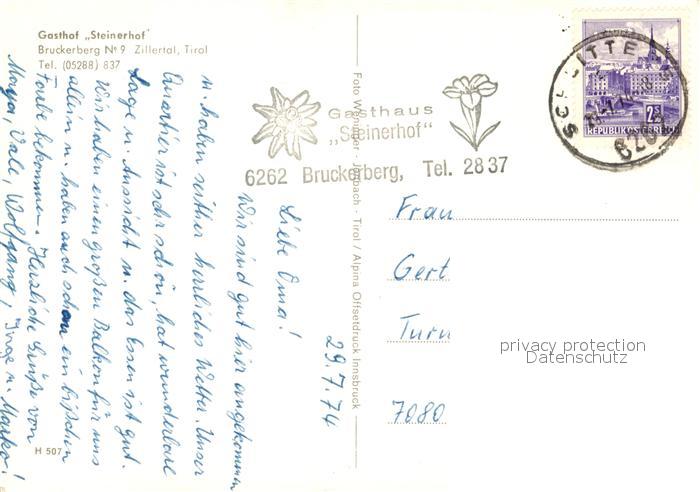 Gasthof „Steinerhof"
Bruckerberg Nº 9 Zillertal, Tirol
Tel. (05288) 837
Gasthaus
„Steinerhof"
6262 Bruckerberg, Tel. 2837
SCHLITTERS
6262
2S
REPUBLIK ÖSTERREICH
Foto Weninger - Jenbach - Tirol / Alpina Offsetdruck Innsbruck
29.7.74
Liebe Oma!
Wir sind gut hier angekommen
u. haben seither herrliches Wetter. Unser
Quartier ist sehr schön, hat wunderbare
Lage u. Aussicht u. das Essen ist gut.
Wir haben einen großen Balkon für uns
allein u. haben auch schon ein bißchen
Farbe bekommen. Herzliche Grüße von
Maya, Vale, Wolfgang, Inge u. Marko!
Frau
Gert
Turn
7080
privacy protection
Datenschutz
H 507